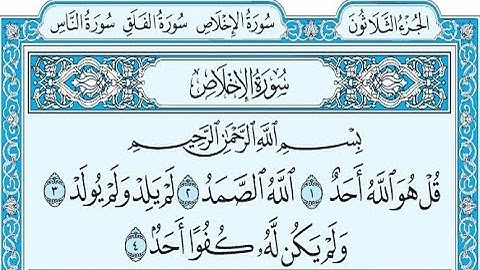 الجزء الثلاثون سورة الإخلاص سورة الفلق سورة الناس
سورة الإخلاص
بِسْمِ ٱللَّهِ ٱلرَّحْمَٰنِ ٱلرَّحِيمِ
قُلْ هُوَ ٱللَّهُ أَحَدٌ ١ ٱللَّهُ ٱلصَّمَدُ ٢ لَمْ يَلِدْ وَلَمْ يُولَدْ ٣
وَلَمْ يَكُن لَّهُۥ كُفُوًا أَحَدٌۢ ٤